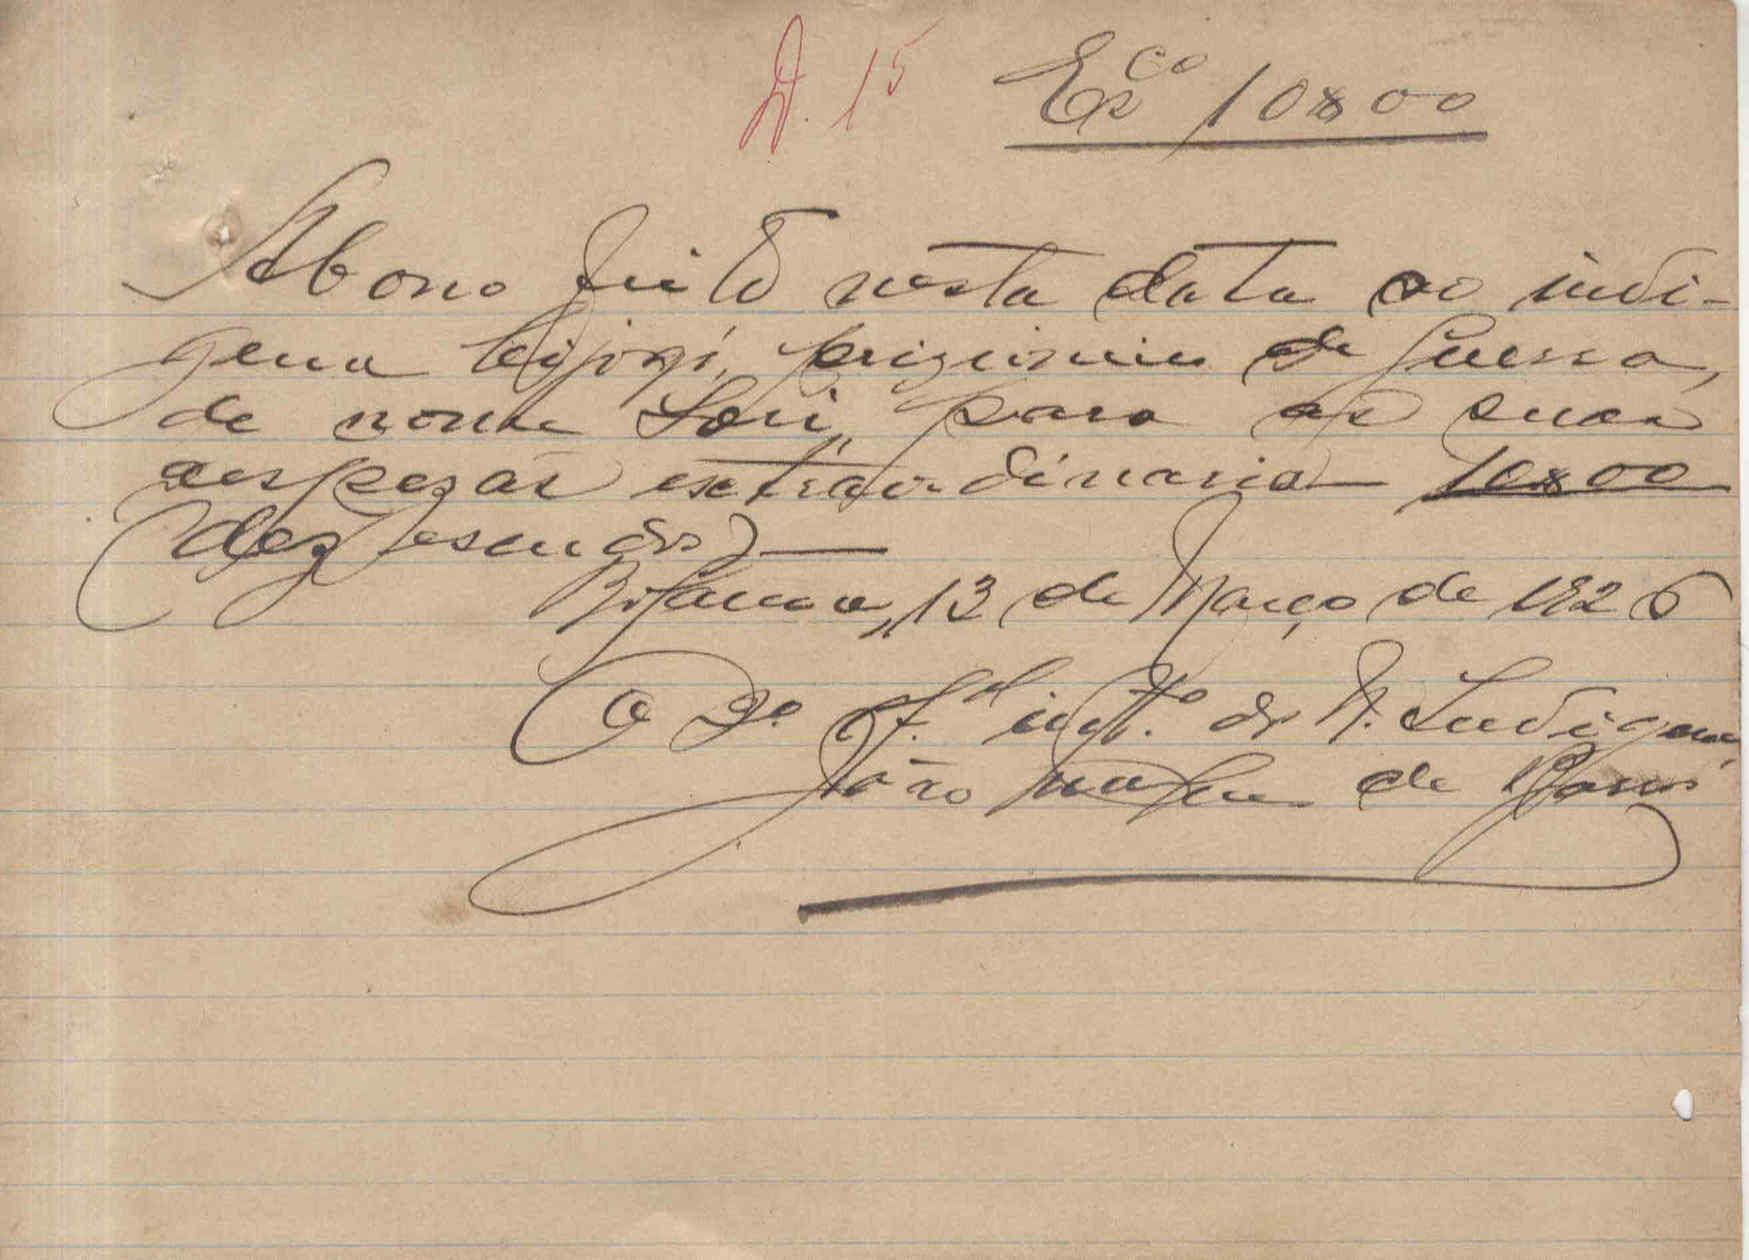 D. 15 Esco 10$00
Abono feito nesta data ao indi-
gena bijogó, prizioneiro de Guerra,
de nome para as suas
despezas extraordinarias 10$00
(dez escudos)—
Bolama, 13 de Março de 1926
O de N. Indigenas
João de